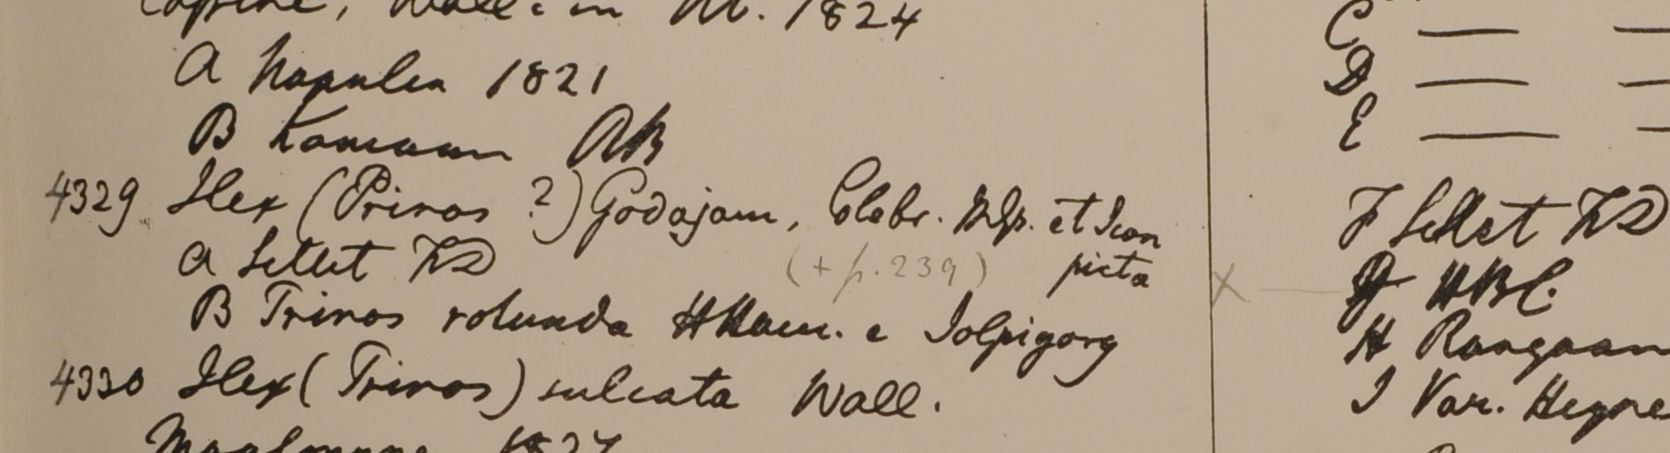 Wall. in 1824
A Napalia 1821
B Kamaun RB
4329 Ilex (Prinos ?) Godajam, Colebr. et Icon
picta
A Sillet FD
(+ p. 239)
B Prinos rotunda HHam. e Jolpigory
4330 Ilex (Prinos) sulcata Wall.
1827
C — —
D — —
E — —
F Sillet FD
X — G HBC.
H Rangoon
I Var.